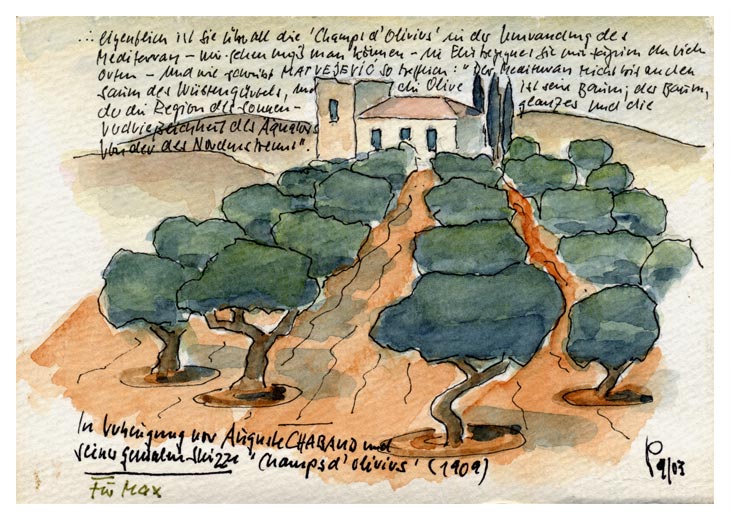 eigentlich ist sie überall die 'Champs d'Olivius' in der Umrandung des
Mediterran – nur sehen muß man können –
orten – und wie schreibt MATVEJEVIĆ so treffend: "Der Mediterran reicht bis an den
Saum des Wüstengürtels, und die Olive ist sein Baum; der Baum,
der die Region des Sonnen- glanzes und die
des Äquators
von der des Nordens trennt".
In Verneigung vor Auguste CHABAUD und
seiner genialen Skizze 'Champs d'olivius' (1909)
Für Max
9/03